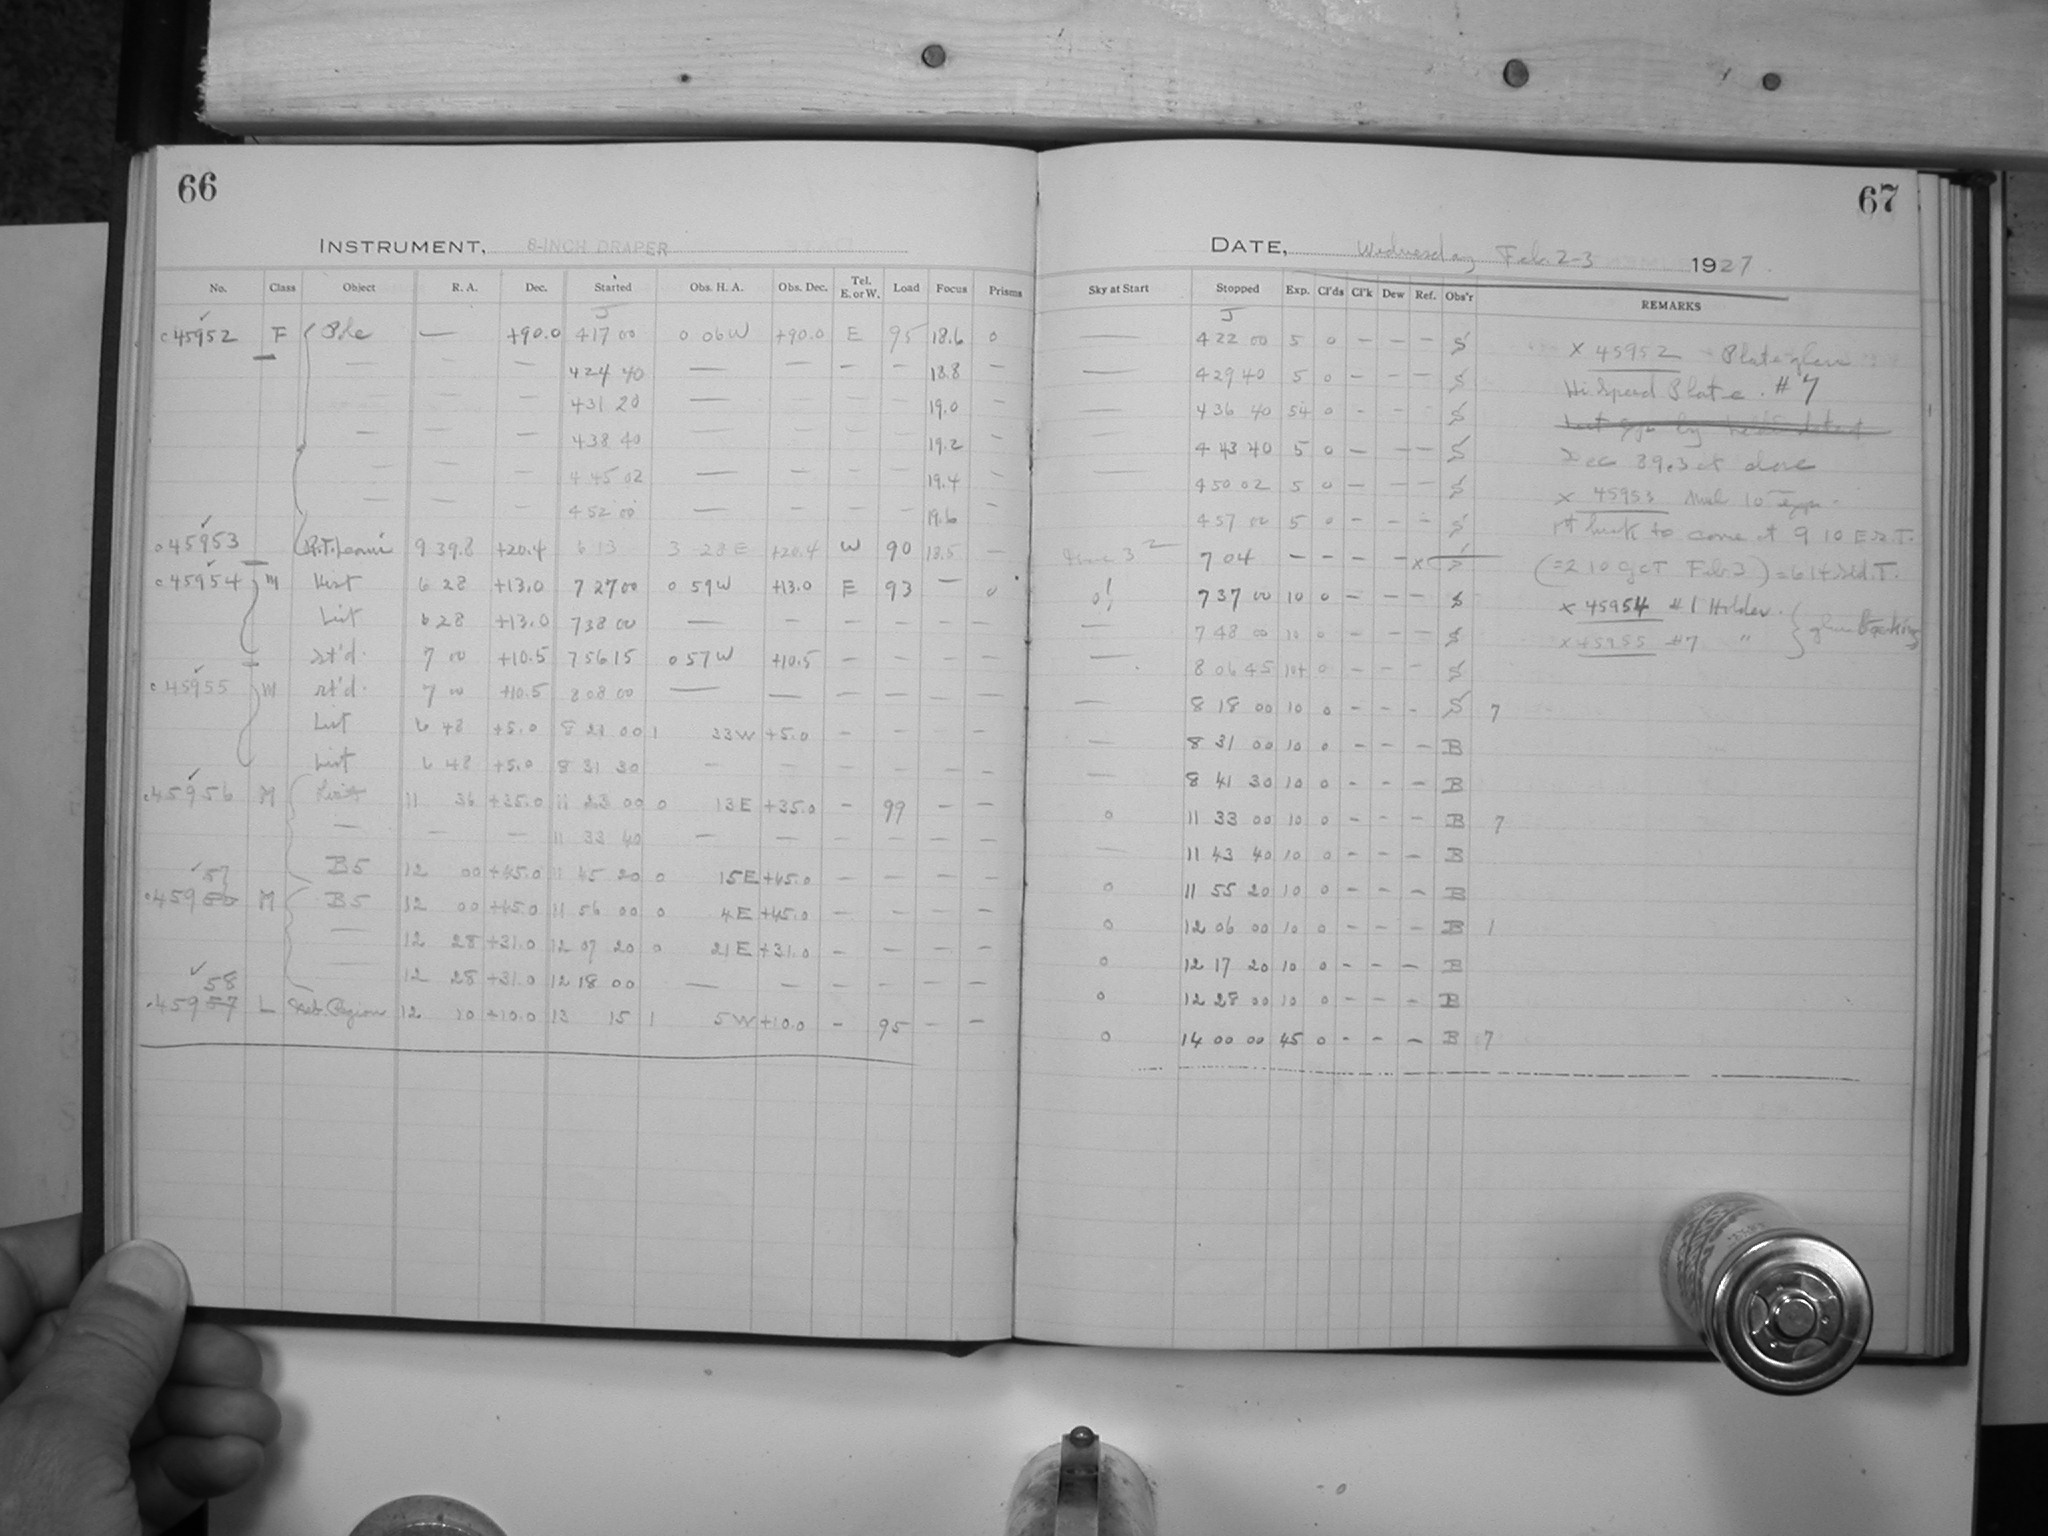 66
INSTRUMENT, 8-INCH DRAPER
No. Class Object R. A. Dec. Started Obs. H. A. Obs. Dec. Tel. E. or W. Load Focus Prisms
J
c45952 F Pole — +90.0 4 17 00 0 06 W +90.0 E 95 18.6 0
— — 4 24 40 — — — — 18.8 —
4 31 20 — 19.0 —
— — 4 38 40 19.2 —
— — 4 45 02 — — — — 19.4 —
— — 4 52 00 — — — — 19.6 —
c45953 R.T. Leonis 9 39.8 +20.4 6 13 3 28 E +20.4 W 90 18.5 —
c45954 M List 6 28 +13.0 7 27 00 0 59 W +13.0 E 93 — 0
List 6 28 +13.0 7 38 00 — — — — — —
St'd. 7 00 +10.5 7 56 15 0 57 W +10.5 — — — —
c45955 M St'd. 7 00 +10.5 8 08 00 — — — — — —
List 6 48 +5.0 8 21 00 1 33 W +5.0 — — — —
List 6 48 +5.0 8 31 30 — — — — — —
c45956 M List 11 36 +35.0 11 23 00 0 13 E +35.0 — 99 — —
— — — 11 33 40 — — — — — —
B5 12 00 +45.0 11 45 20 0 15 E +45.0 — — — —
57
c45956 M B5 12 00 +45.0 11 56 00 0 4 E +45.0 — — — —
— 12 28 +31.0 12 07 20 0 21 E +31.0 — — — —
— 12 28 +31.0 12 18 00 — — — — — —
58
c45957 L Neb. Region 12 10 +10.0 13 15 1 5 W +10.0 — 95 — —
67
DATE, Wednesday Feb. 2-3 1927.
Sky at Start Stopped Exp. Cl'ds Cl'k Dew Ref. Obs'r REMARKS
J
— 4 22 00 5 0 — — — S
— 4 29 40 5 0 — — — S
— 4 36 40 5+ 0 — — — S
— 4 43 40 5 0 — — — S
— 4 50 02 5 0 — — — S
— 4 57 00 5 0 — — — S
7 04 — — — — x S
0! 7 37 00 10 0 — — — S
— 7 48 00 10 0 — — — S
— 8 06 45 10+ 0 — — — S
— 8 18 00 10 0 — — — S 7
— 8 31 00 10 0 — — — B
— 8 41 30 10 0 — — — B
0 11 33 00 10 0 — — — B 7
— 11 43 40 10 0 — — — B
0 11 55 20 10 0 — — — B
0 12 06 00 10 0 — — — B 1
0 12 17 20 10 0 — — — B
0 12 28 00 10 0 — — — B
0 14 00 00 45 0 — — — B 7
x 45952 Plate glass
Hi Speed Plate. #7
Dec 89.3 at close
x 45953 Mul 10 Exp.
1st back to come at 9 10 E.S.T.
(= 2 10 GCT Feb. 3) = 6 14 Sid. T.
x 45954 #1 Holder.
x 45955 #7 "